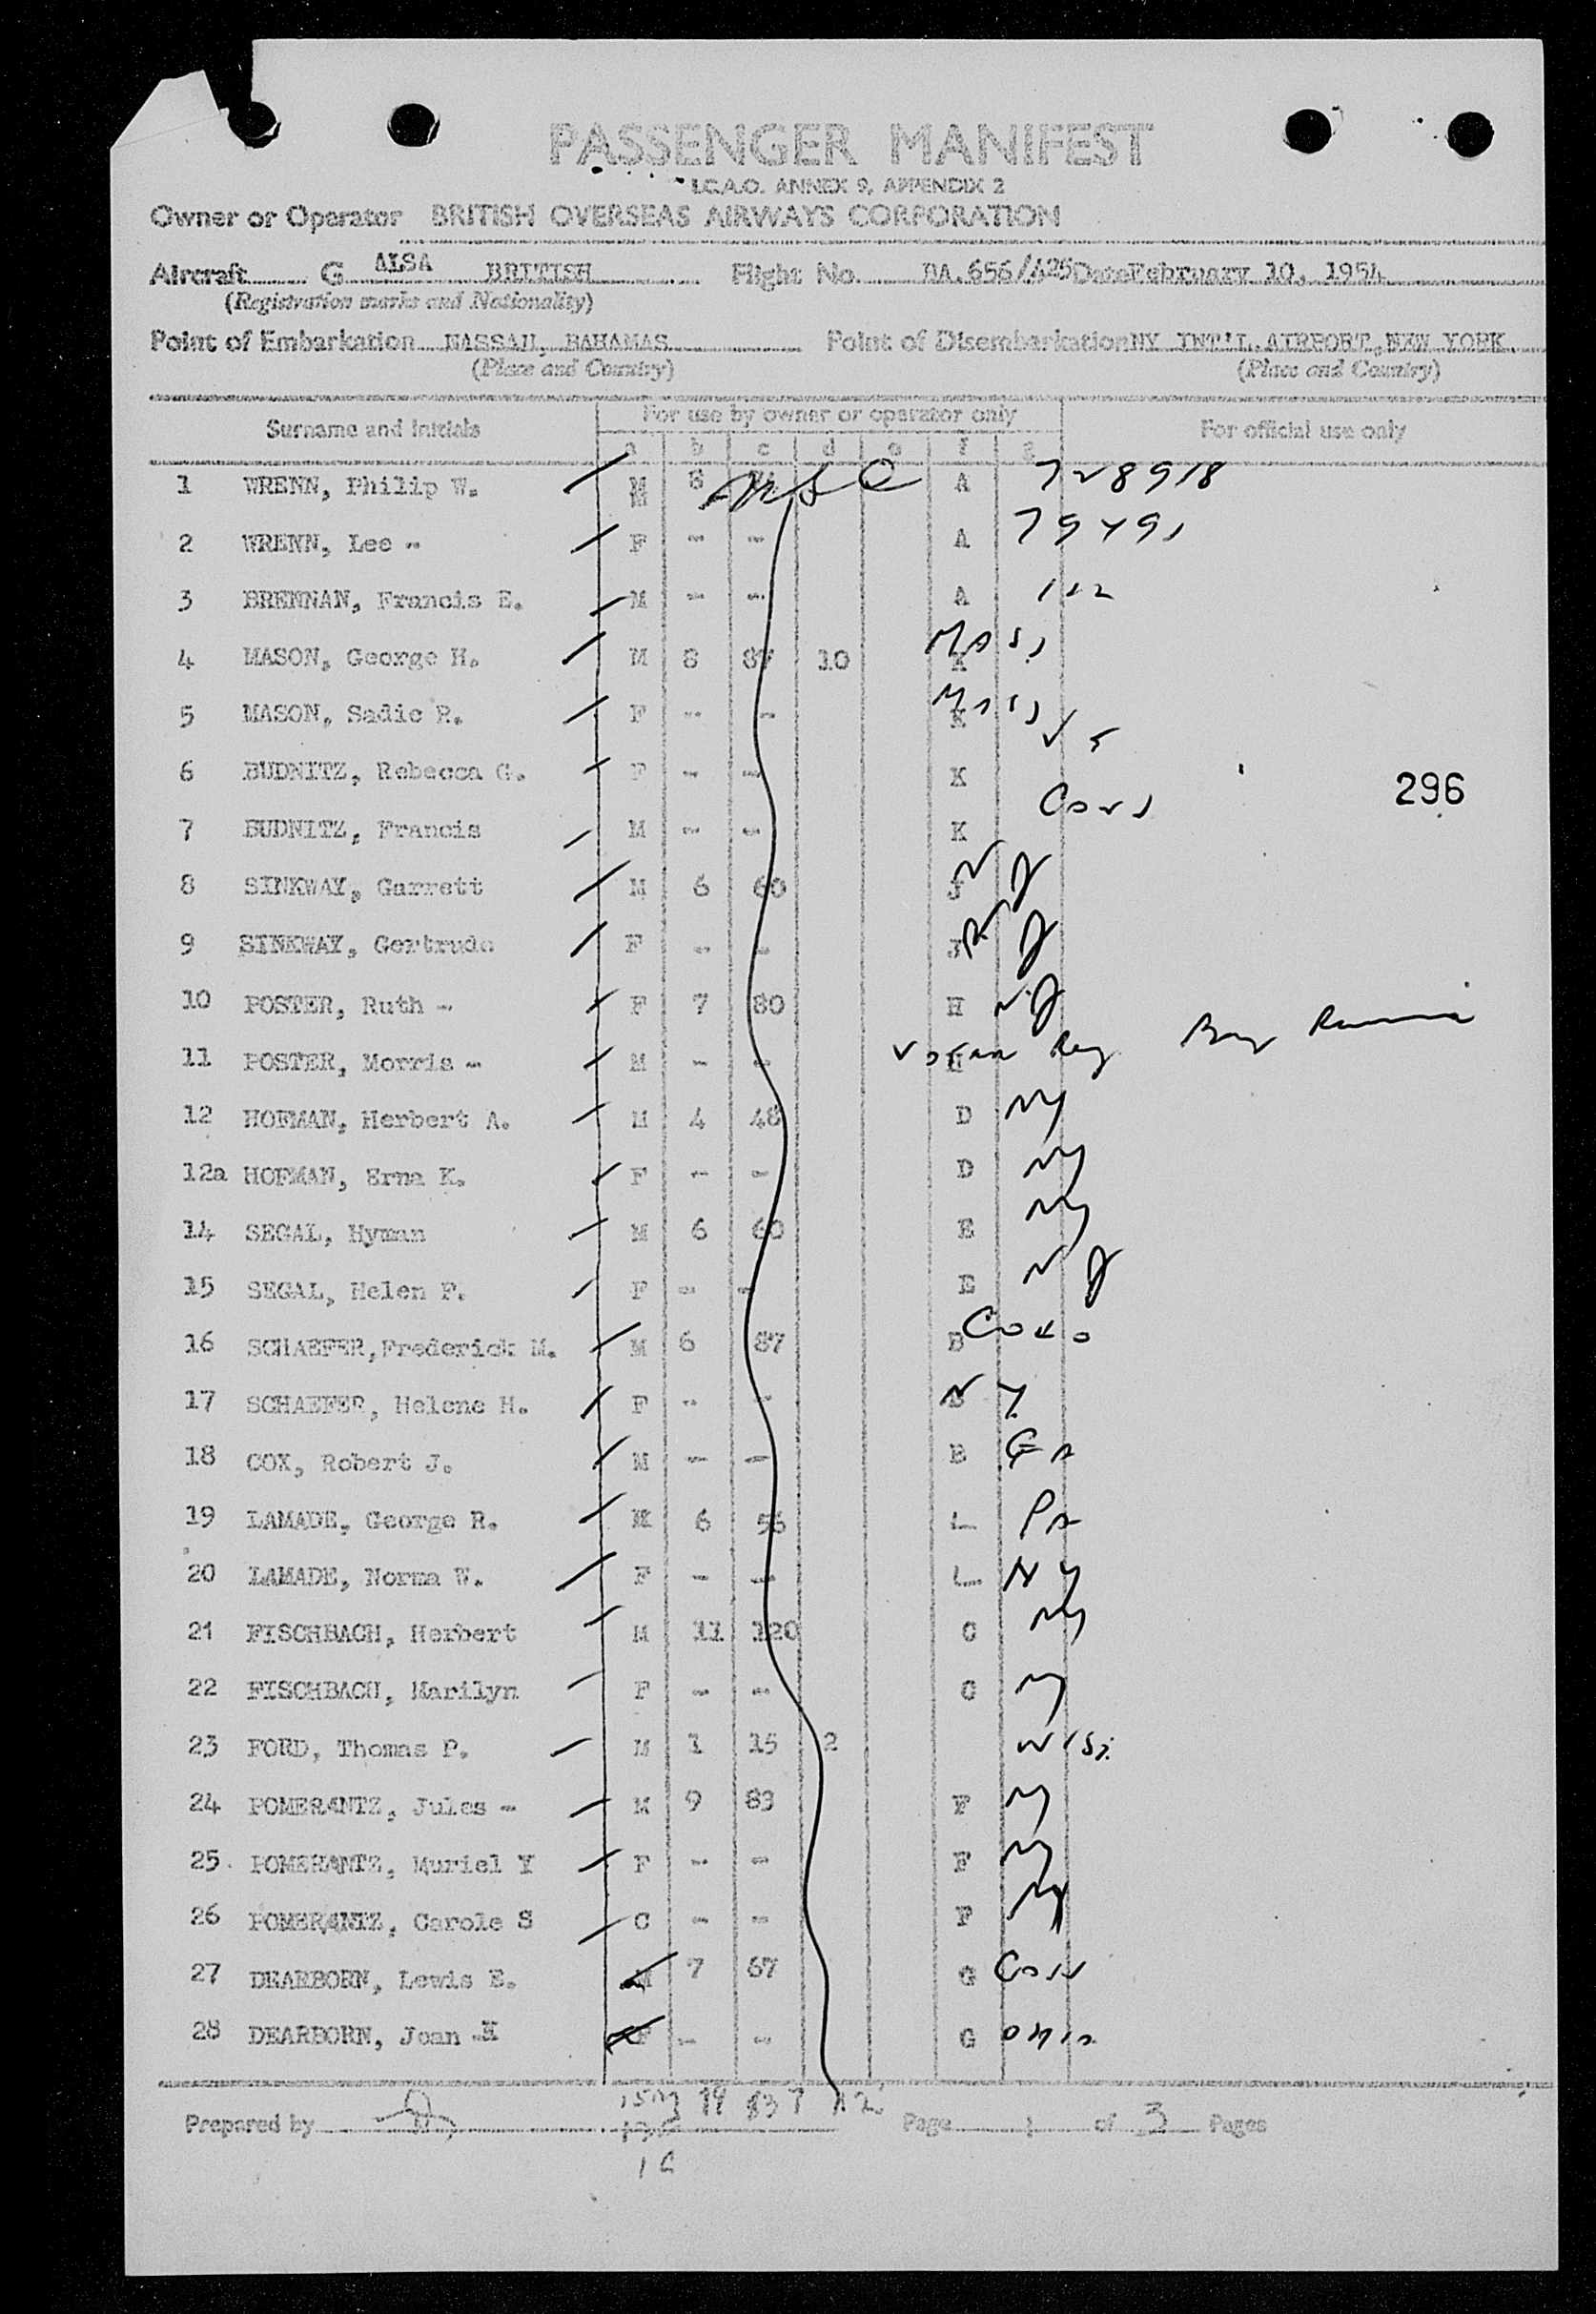 PASSENGER MANIFEST
I.C.A.O. ANNEX 9, APPENDIX 2
Owner or Operator BRITISH OVERSEAS AIRWAYS CORPORATION
Aircraft G ALSA BRITISH Flight No. BA.656/425 Date February 10, 1954
(Registration marks and Nationality)
Point of Embarkation NASSAU, BAHAMAS Point of Disembarkation NY INT'L AIRPORT, NEW YORK.
(Place and Country) (Place and Country)
Surname and Initials For use by owner or operator only For official use only
a b c d e f g
1 WRENN, Philip W. M 8 USC A 728918
2 WRENN, Lee - F - - A
3 BRENNAN, Francis E. M - - A
4 MASON, George H. M 8 87 10 K Mass
5 MASON, Sadie R. F - - K Mass
6 BUDNITZ, Rebecca G. F - - K
296
7 BUDNITZ, Francis M - - K
8 SINKWAY, Garrett M 6 60 J NJ
9 SINKWAY, Gertrude F - - J NJ
10 POSTER, Ruth - F 7 80 H NJ
11 POSTER, Morris - M - - H
12 HOFMAN, Herbert A. M 4 48 D NY
12a HOFMAN, Erna K. F - - D NY
14 SEGAL, Hyman M 6 60 E NY
15 SEGAL, Helen F. F - - E NJ
16 SCHAEFER, Frederick M. M 6 87 B Colo
17 SCHAEFER, Helene H. F - - B NY
18 COX, Robert J. M - - B Ga
19 LAMADE, George R. M 6 56 L Pa
20 LAMADE, Norma W. F - - L NY
21 FISCHBACH, Herbert M 11 120 C NY
22 FISCHBACH, Marilyn F - - C NY
23 FORD, Thomas P. M 1 15 2 Wisc
24 POMERANTZ, Jules - M 9 83 F NY
25. POMERANTZ, Muriel Y F - - F NY
26 POMERANTZ, Carole S C - - F NY
27 DEARBORN, Lewis E. M 7 67 G Con
28 DEARBORN, Joan H F - - G Ohio
15M 79 837 12
Prepared by Page 1 of 3 Pages
1C